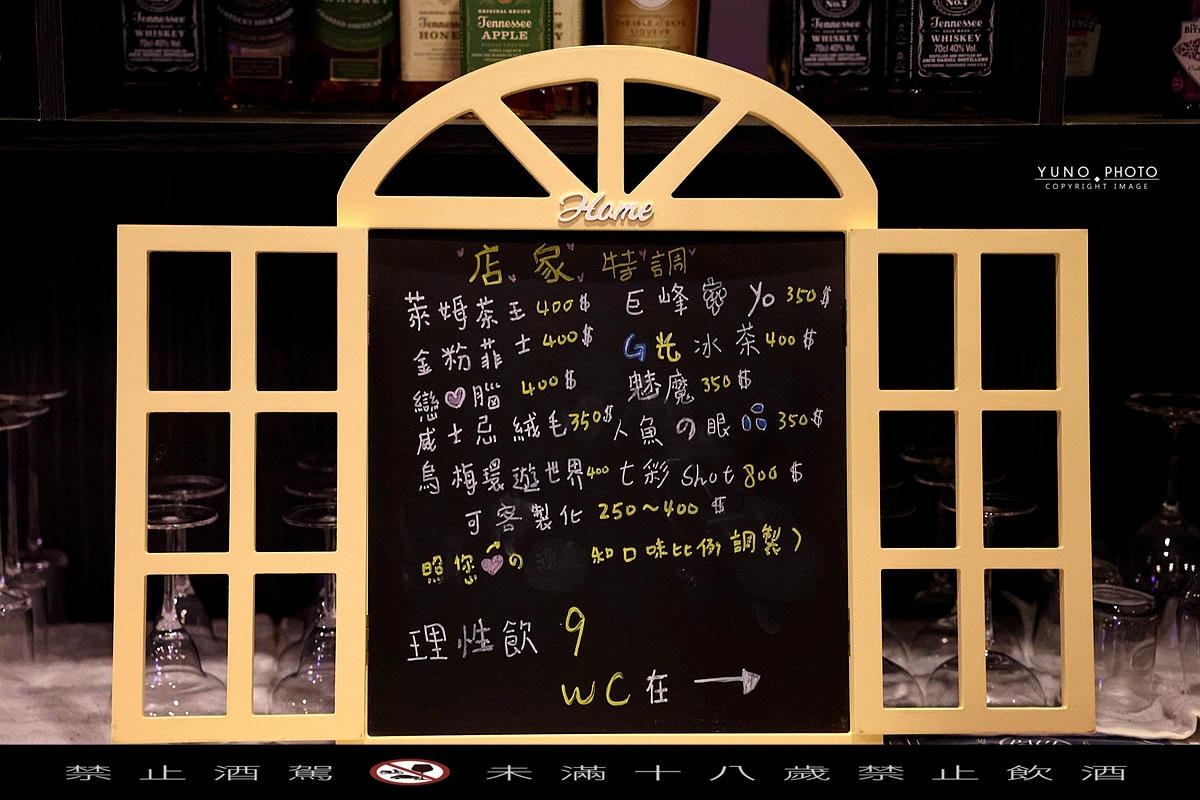 Tennessee
WHISKEY
70cl 40% Vol.
Tennessee
HONEY
ORIGINAL RECIPE
Tennessee
APPLE
THE ISLE OF SKYE
LIQUEUR
Tennessee
WHISKEY
70cl 40% Vol.
Tennessee
WHISKEY
70cl 40% Vol.
YUNO PHOTO
COPYRIGHT IMAGE
Home
店家特調
萊姆萘玉 400$ 巨峰蜜 Yo 350$
金粉菲士 400$ G光冰茶 400$
戀♥腦 400$ 魅魔 350$
威士忌絨毛 350$ 人魚の眼 350$
烏梅環遊世界 400 七彩 Shot 800$
可客製化 250~400 $
照您♥の 知口味比例調製)
理性飲 9
WC在 →
禁止酒駕 未滿十八歲禁止飲酒